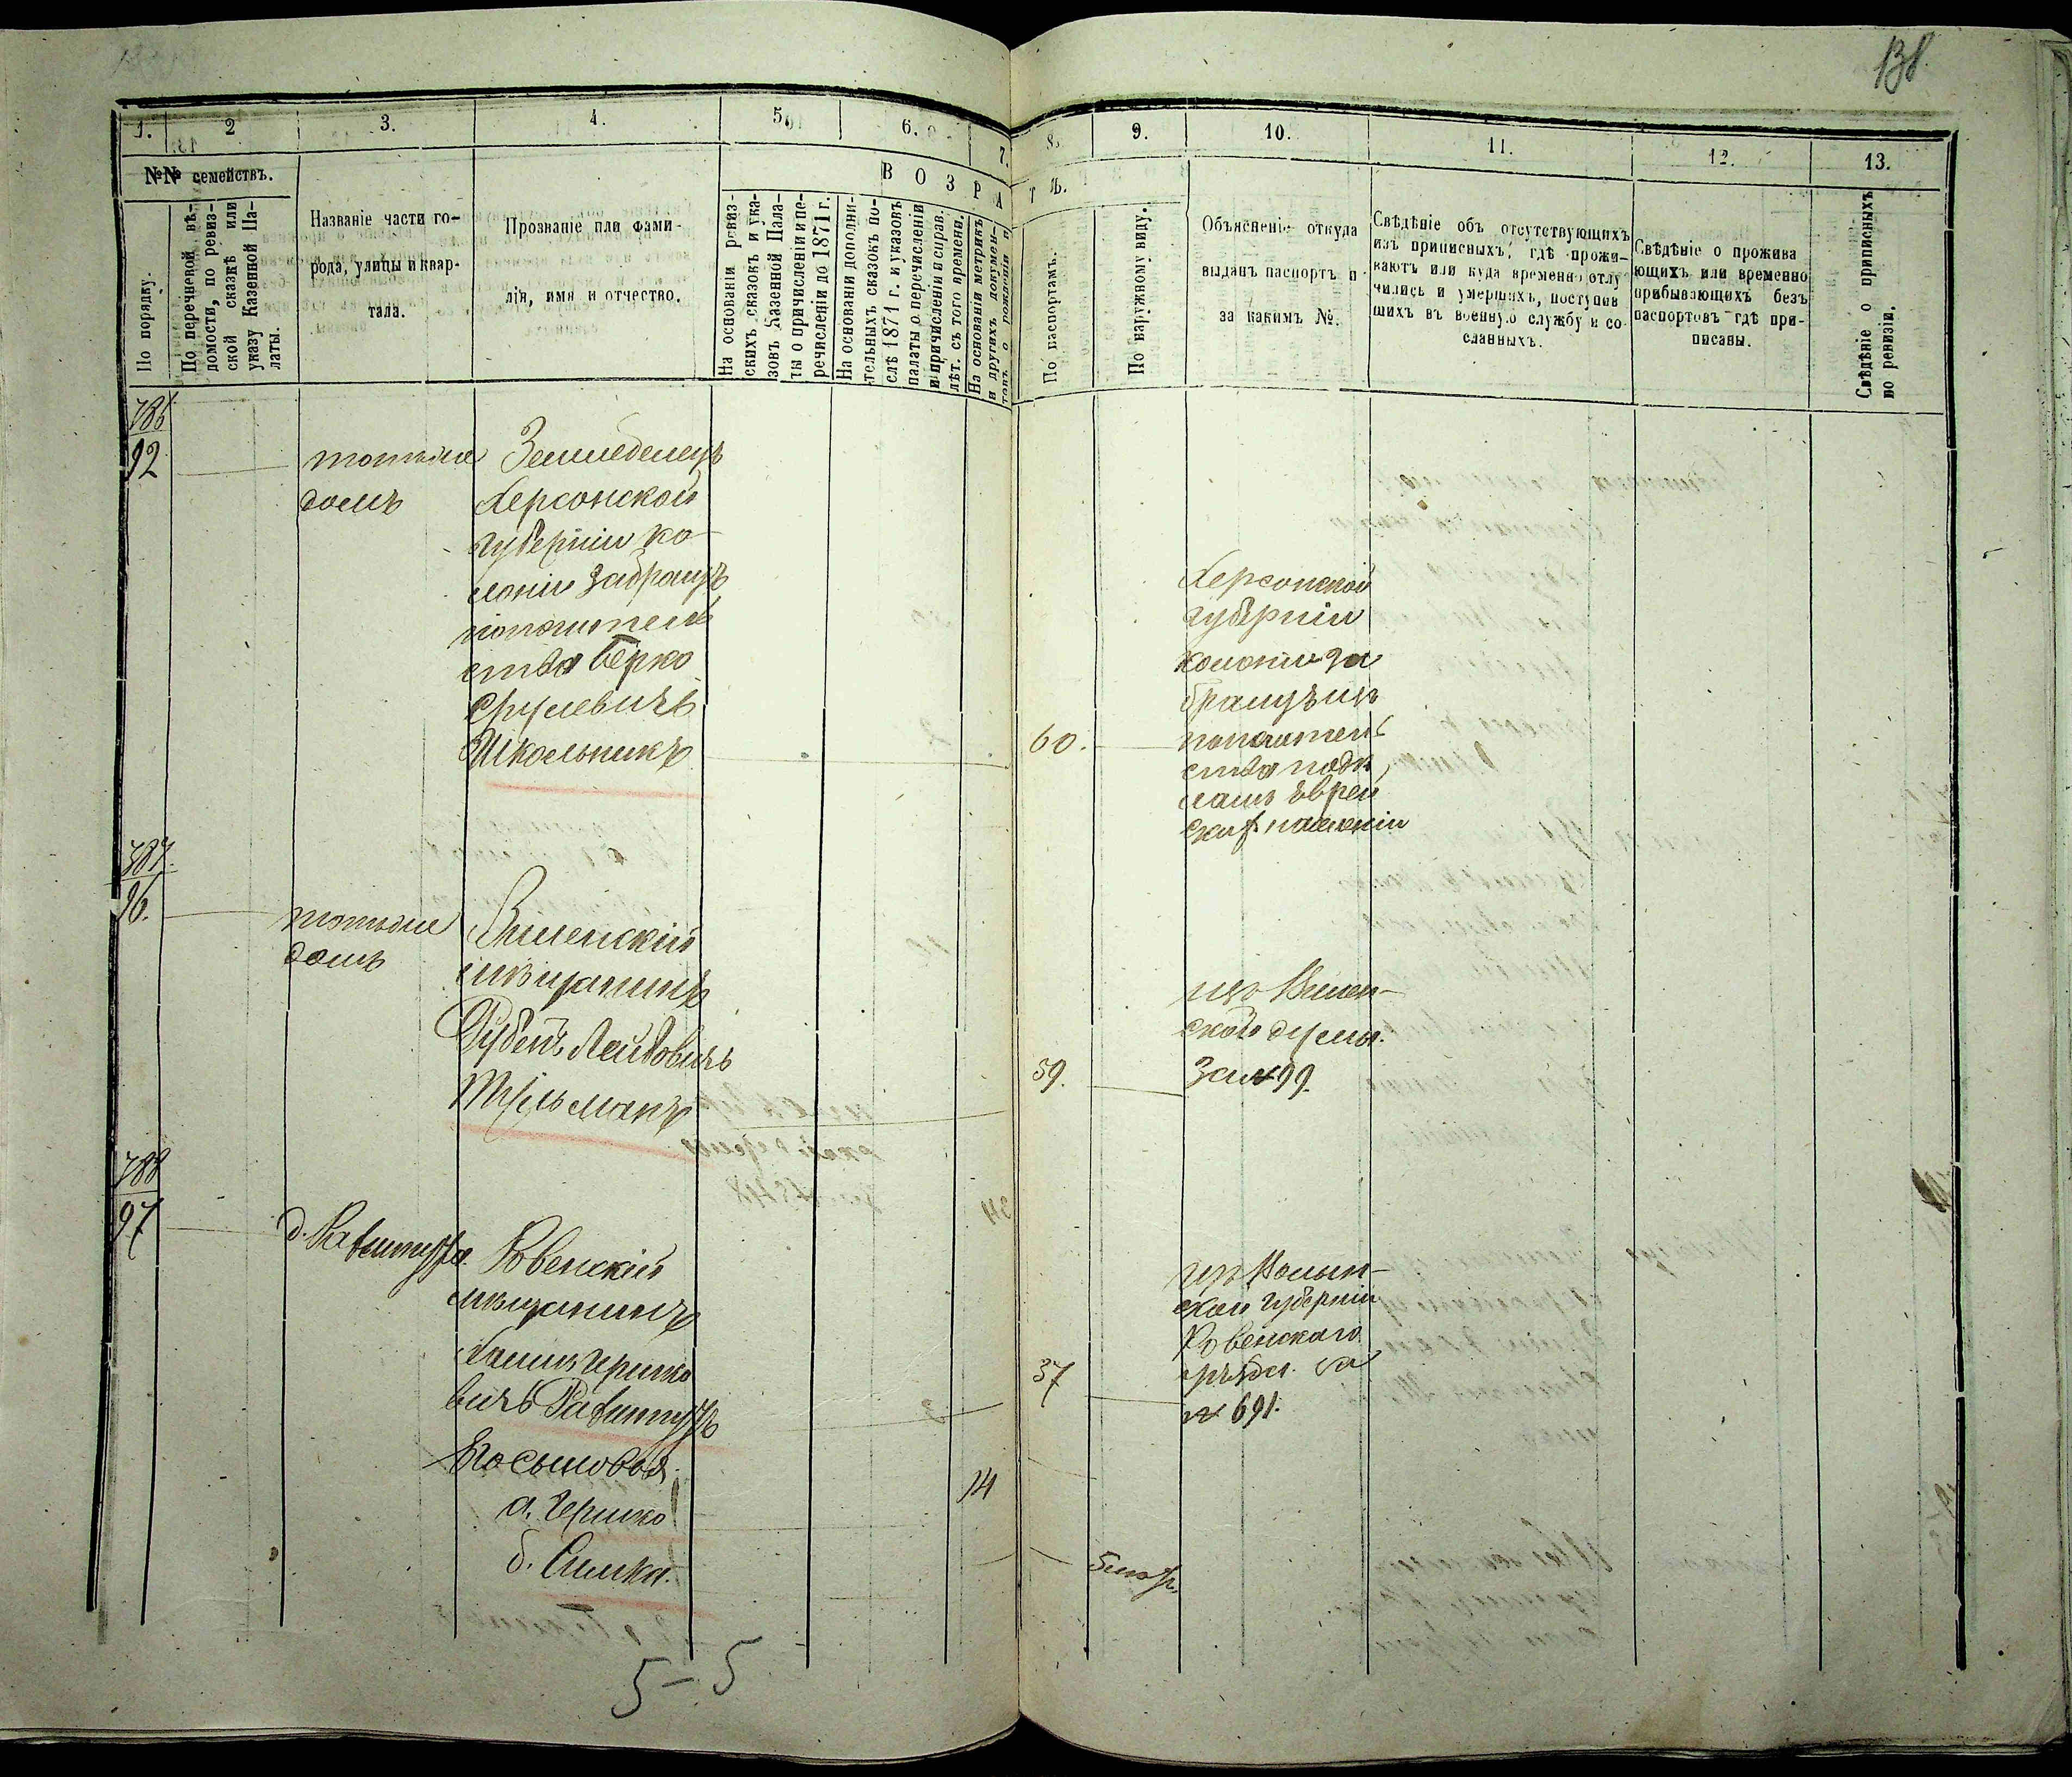 138
1. 2 3. 4. 5. 6. 7. 8. 9. 10. 11. 12. 13.
№№ семействъ.
По порядку.
По перечневой вѣ-
домости, по ревиз-
ской сказкѣ или
указу Казенной Па-
латы.
Названіе части го-
рода, улицы и квар-
тала.
Прозваніе или фами-
лія, имя и отчество.
ВОЗРАСТЪ.
На основаніи ревиз-
скихъ сказокъ и ука-
зовъ Казенной Пала-
ты о причисленіи и пе-
речисленіи до 1871 г.
На основаніи дополни-
тельныхъ сказокъ по-
слѣ 1871 г. и указовъ
палаты о перечисленіи
и причисленіи и справ.
лѣт. съ того времени.
На основаніи метрикъ
и другихъ докумен-
товъ о рожденіи и
По паспортамъ.
По наружному виду.
Объясненіе откуда
выданъ паспортъ и
за какимъ №.
Свѣдѣніе объ отсутствующихъ
изъ приписныхъ, гдѣ прожи-
ваютъ или куда временно отлу
чились и умершихъ, поступив
шихъ въ военную службу и со-
сланныхъ.
Свѣдѣніе о прожива
ющихъ или временно
прибывающихъ безъ
паспортовъ гдѣ при-
писаны.
Свѣдѣніе о приписныхъ
по ревизіи.
786
92
тотъже
домъ
Земледелецъ
Херсонской
губерніи ко-
лоніи
попечитель
ства Берко
Срулевичъ
Школьникъ
60.
Херсонской
губерніи
колоніи
попечитель
ства
787.
96.
тотъже
домъ
Виленскій
мѣщанинъ
Рубенъ Лейбовичъ
59.
изъ Вилен-
ской думы.
за № 99.
788
97
д.
Ровенскій
мѣщанинъ
Хаимъ Гершко
вичъ
37
изъ Волын-
ской губерніи
Ровенскаго
за
№ 691.
Его сыновья
а. Гершко
14
б. Симха.
5
5-5